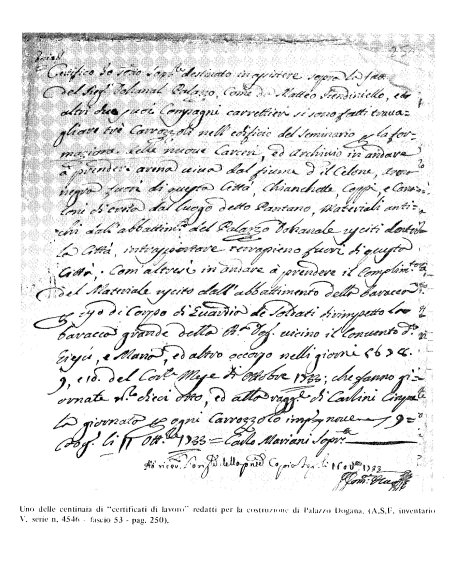 Certifico Io sotto Sopr.te destinato in assistere sopra la fab.
del Reg.l Dohanal Palazzo, Come da Matteo Fiendiniello, ed
altri due suoi Compagni carrettieri si sono fatti trava-
gliare trè Carrozzoli nell' edificio del Seminario p la for-
mazione delle nuove Carceri, ed Archivio in andare
à prendere arena viva dal fiume d'il Celone, 
negra fuori di questa Città, Chianchette Coppi, e 
loni di Creta dal luogo detto Pantano, Materiali anti-
chi dall' abbattim.to del Palazzo Dohanale usciti dentro
la Città, in trasportare terrapieno fuori di questa
Città, Com' altresì in andare à prendere il Complim.to
del Materiale uscito dall' abbattimento della baracca
p uso di Corpo di Guardia de Soldati dirimpetto la
baracca grande della R.l Doh.a vicino il Convento di
Giesù, e Maria, ed altro occorso nelli giorni 5 6 7 8.
9, e 10. del Corr.te Mese di Ottobre 1733; che fanno gi-
ornate n.o dieci otto, ed alla ragg.e di Carlini Cinque
la giornata p ogni Carrozzolo importano 9=
Fog.a li 11 Ott.e 1733 = Carlo Mariani Sopr.te
1733
Uno delle centinara di "certificati di lavoro" redatti per la costruzione di Palazzo Dogana. (A.S.F. inventario
V, serie n. 4546 - fascio 53 - pag. 250).